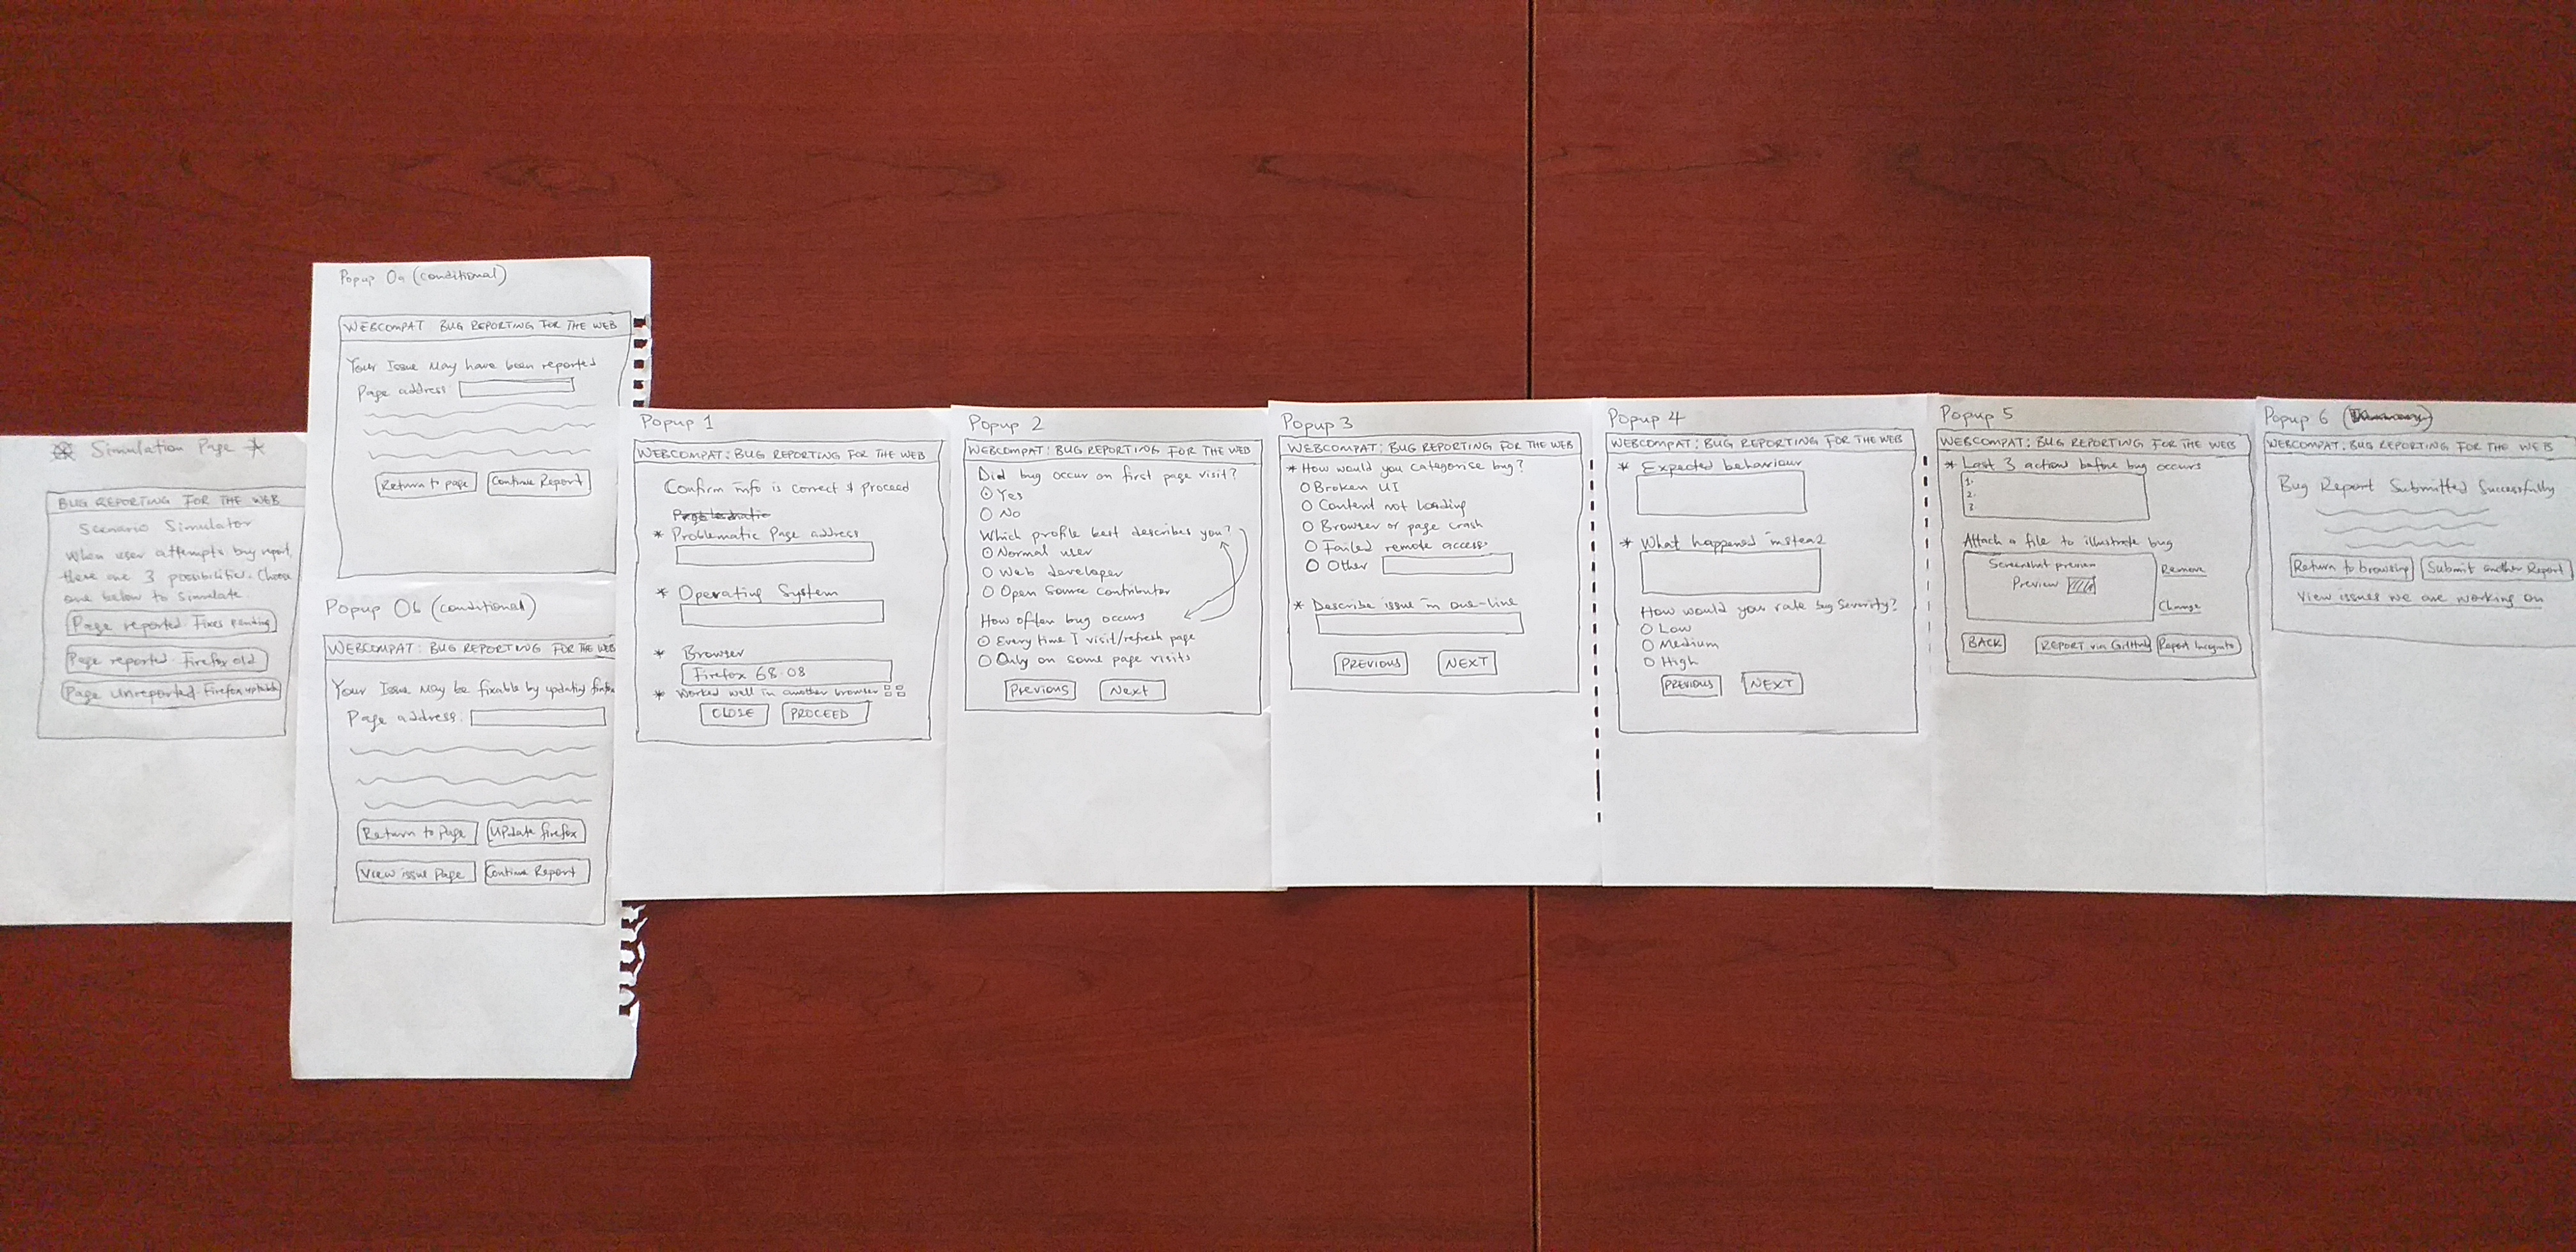 Simulation Page
BUG REPORTING FOR THE WEB
Scenario Simulator
When user attempts bug report,
there are 3 possibilities. Choose
one below to simulate.
Page reported Fixes pending
Page reported Firefox old
Page Unreported Firefox uptodate
Popup 0a (conditional)
WEBCOMPAT BUG REPORTING FOR THE WEB
Your Issue May have been reported
Page address
Return to page
Continue Report
Popup 0b (conditional)
WEBCOMPAT: BUG REPORTING FOR THE WEB
Your Issue May be fixable by updating firefox
Page address
Return to Page
Update firefox
View issue Page
Continue Report
Popup 1
WEBCOMPAT: BUG REPORTING FOR THE WEB
Confirm info is correct & proceed
* Problematic Page address
* Operating System
* Browser
Firefox 68.08
* Worked well in another browser
CLOSE
PROCEED
Popup 2
WEBCOMPAT: BUG REPORTING FOR THE WEB
Did bug occur on first page visit?
Yes
No
Which profile best describes you?
Normal user
Web developer
Open Source contributor
How often bug occurs
Every time I visit/refresh page
Only on some page visits
Previous
Next
Popup 3
WEBCOMPAT: BUG REPORTING FOR THE WEB
* How would you categorise bug?
Broken UI
Content not loading
Browser or page crash
Failed remote access
Other
* Describe issue in one-line
PREVIOUS
NEXT
Popup 4
WEBCOMPAT: BUG REPORTING FOR THE WEB
* Expected behaviour
* What happened instead
How would you rate bug Severity?
Low
Medium
High
PREVIOUS
NEXT
Popup 5
WEBCOMPAT: BUG REPORTING FOR THE WEB
* Last 3 actions before bug occurs
1.
2.
3
Attach a file to illustrate bug
Screenshot preview
Preview
Remove
Change
BACK
REPORT via GitHub
Report Incognito
Popup 6
WEBCOMPAT: BUG REPORTING FOR THE WEB
Bug Report Submitted Successfully
Return to browsing
Submit another Report
View issues we are working on